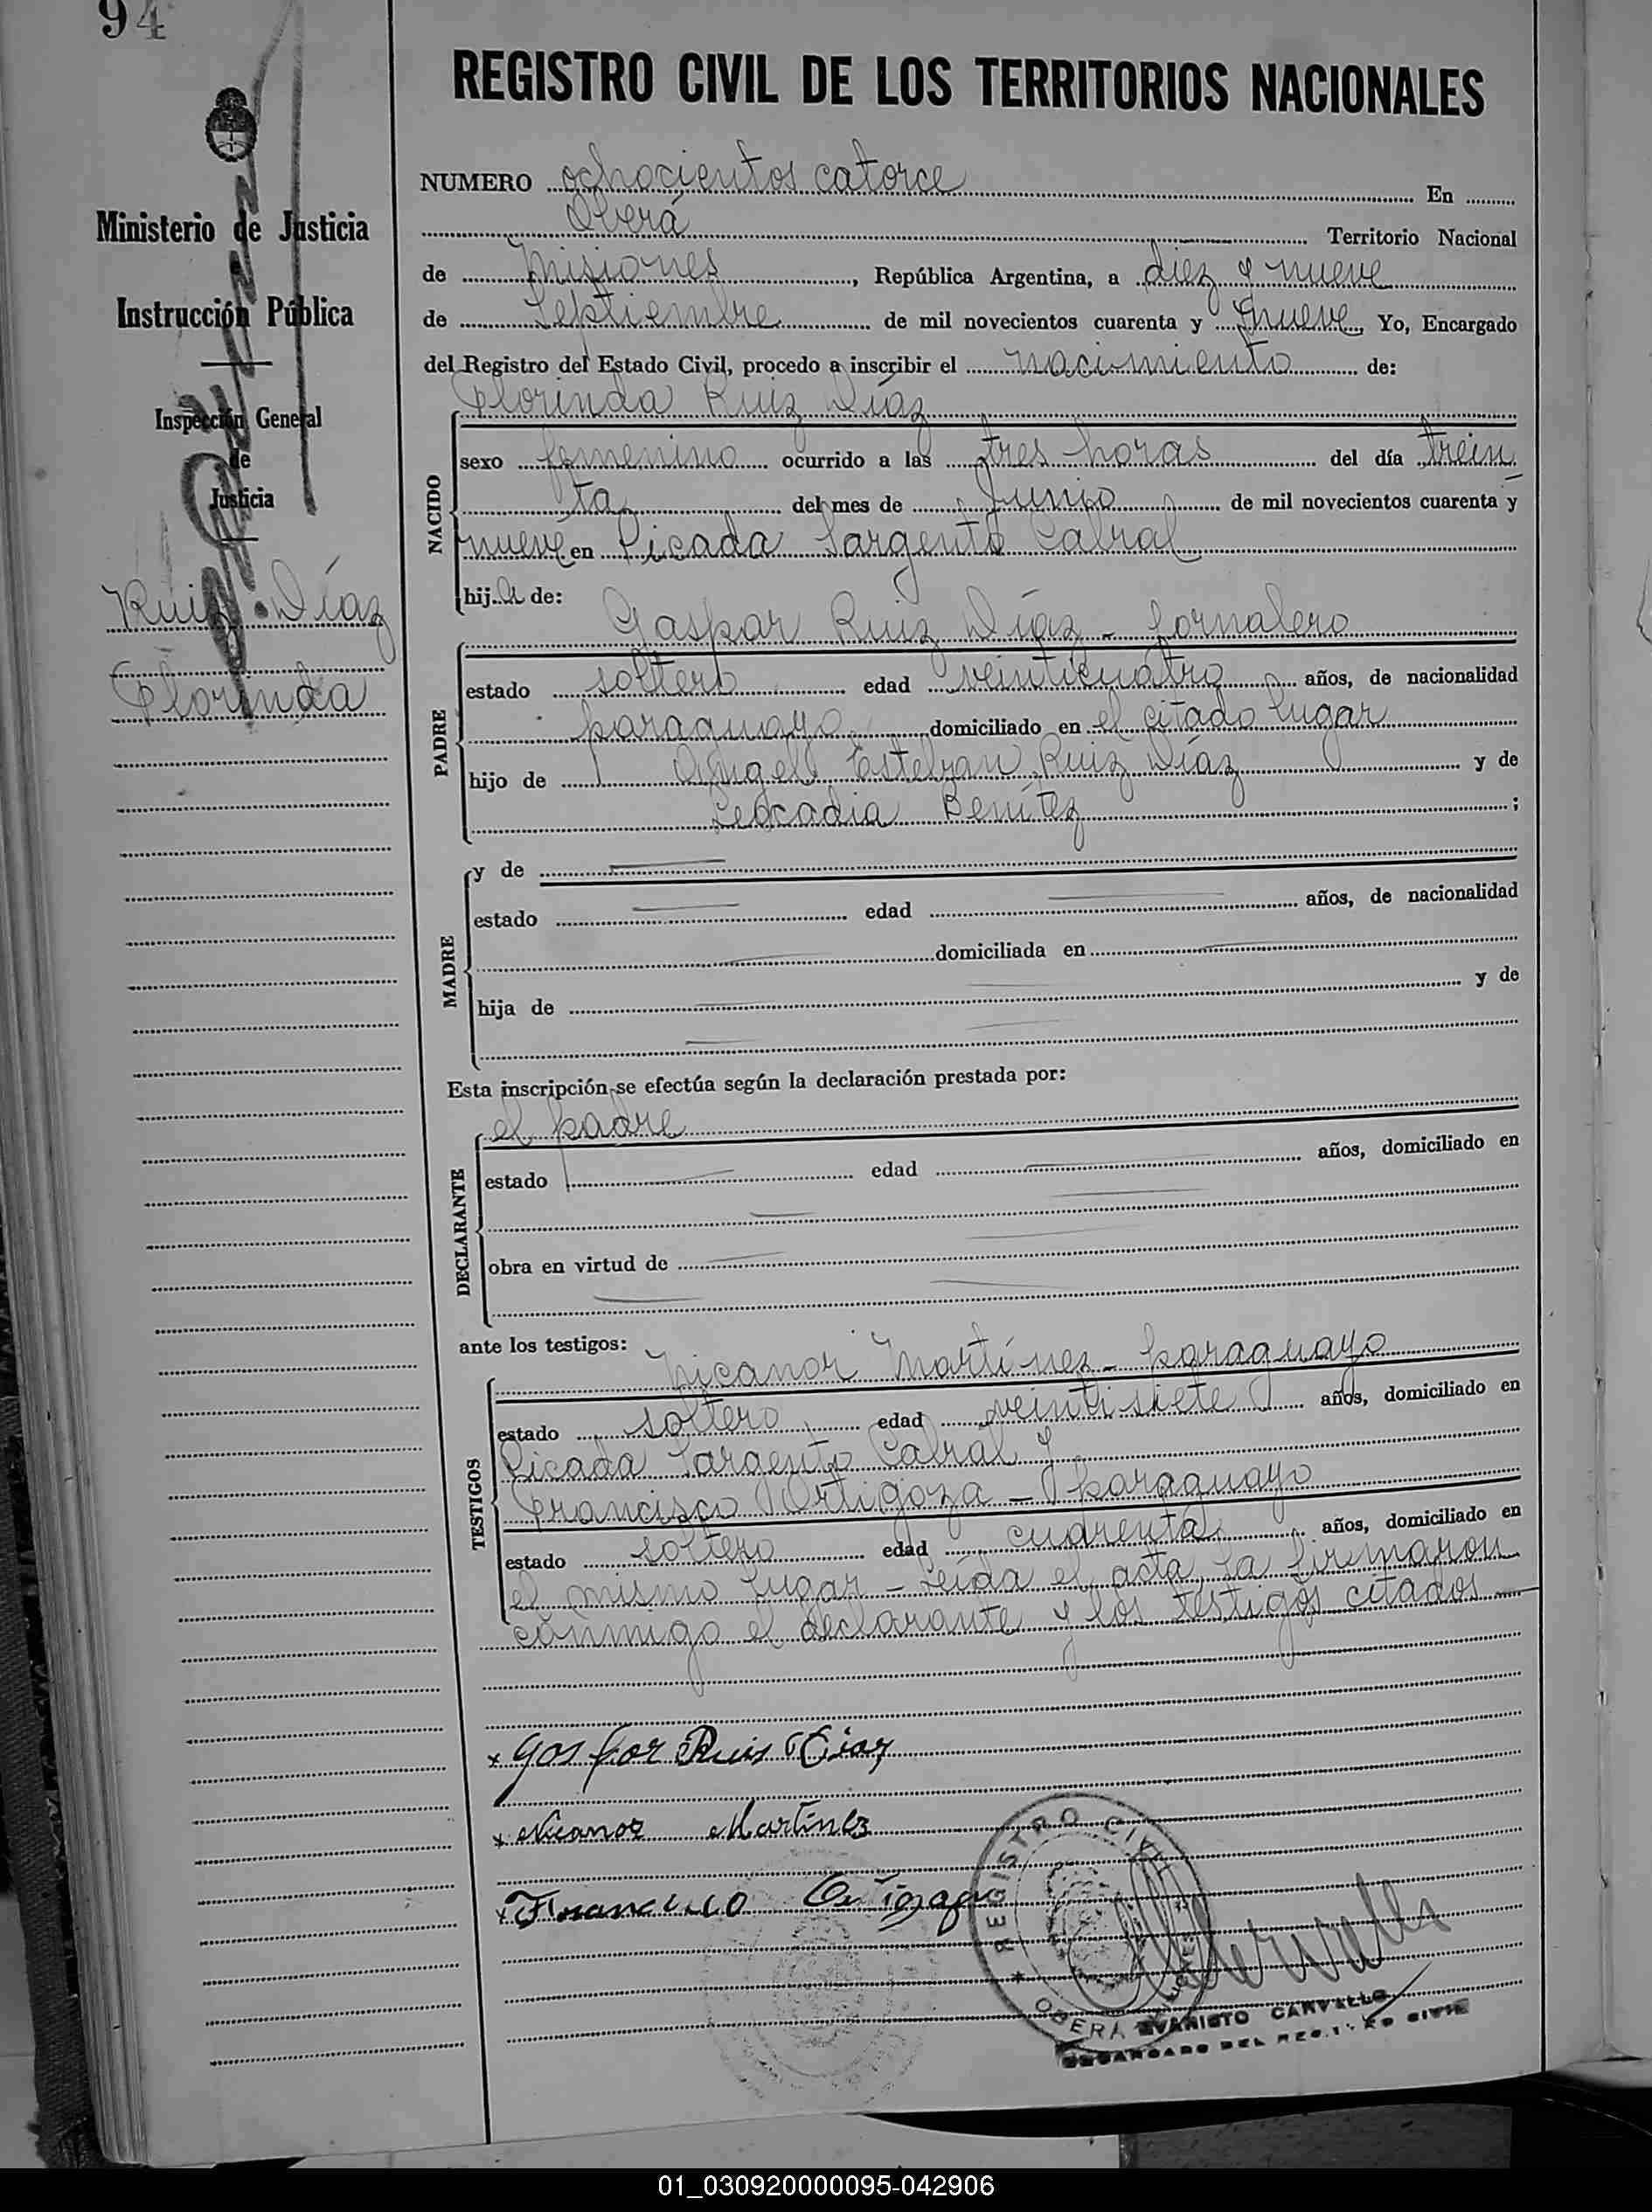 94
REGISTRO CIVIL DE LOS TERRITORIOS NACIONALES
Ministerio de Justicia
Instrucción Pública
Inspección General
de
Justicia
Ruiz Díaz
Florinda
NUMERO ochocientos catorce En
Oberá Territorio Nacional
de Misiones, República Argentina, a diez y nueve
de Septiembre de mil novecientos cuarenta y nueve, Yo, Encargado
del Registro del Estado Civil, procedo a inscribir el nacimiento de:
Florinda Ruiz Díaz
NACIDO
sexo femenino ocurrido a las tres horas del día trein
ta del mes de Junio de mil novecientos cuarenta y
nueve en Picada Sargento Cabral
hija de:
Gaspar Ruiz Díaz - Jornalero
PADRE
estado soltero edad veinticuatro años, de nacionalidad
paraguayo domiciliado en el citado lugar
hijo de Angel Esteban Ruiz Díaz y de
Leocadia Benítez ;
MADRE
y de
estado edad años, de nacionalidad
domiciliada en
hija de y de
Esta inscripción se efectúa según la declaración prestada por:
el padre
DECLARANTE
estado edad años, domiciliado en
obra en virtud de
ante los testigos:
Nicanor Martínez - paraguayo
TESTIGOS
estado soltero edad veintisiete años, domiciliado en
Picada Sargento Cabral y
Francisco Ortigoza - paraguayo
estado soltero edad cuarenta años, domiciliado en
el mismo lugar - Leída el acta, la firmaron
conmigo el declarante y los testigos citados
x Gaspar Ruis Diaz
x Nicanor Martínez
x Francisco
REGISTRO CIVIL
OBERA
EVARISTO CARVALLO
ENCARGADO DEL REGISTRO CIVIL
01_030920000095-042906